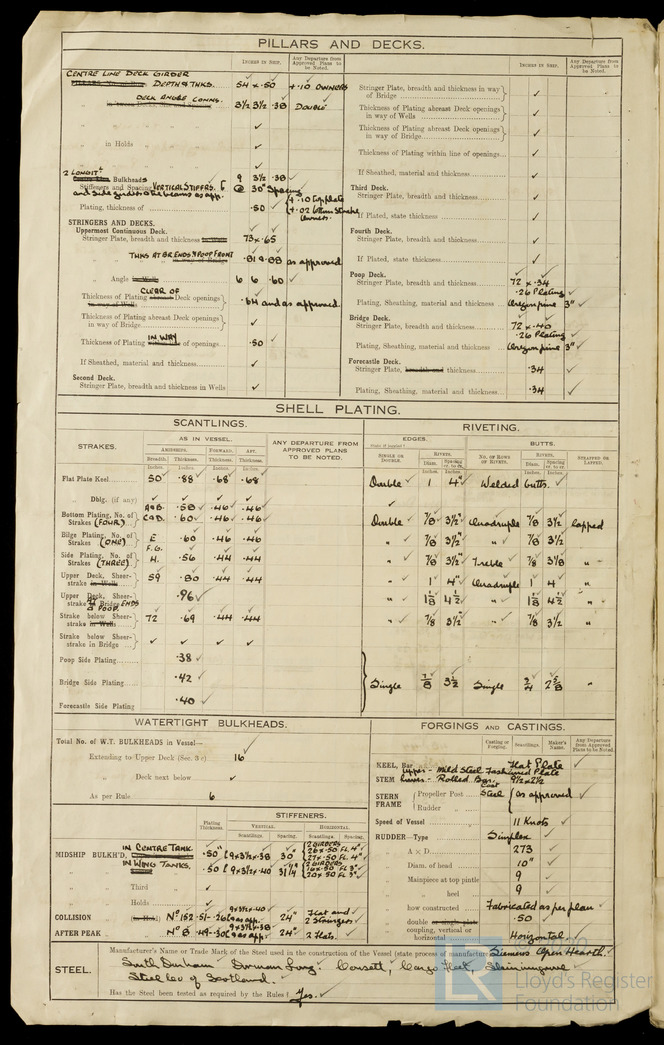 PILLARS AND DECKS.
INCHES IN SHIP.
Any Departure from Approved Plans to be Noted.
INCHES IN SHIP.
Any Departure from Approved Plans to be Noted.
CENTRE LINE DECK GIRDER
DEPTH & THKS. 54 x .50 ✓ + .10 OWNERS
DECK ANGLE CONNS. 3½ 3½ .38 DOUBLE
" in Holds ✓
2 LONGITL Bulkheads 9 3½ .38
Stiffeners and Spacing VERTICAL STIFFRS. @ 30" Spacing
and side girders & the beams as app.
Plating, thickness of .50 ✓ + .10 Top plate
+ .02 Owners.
STRINGERS AND DECKS.
Uppermost Continuous Deck.
Stringer Plate, breadth and thickness 73 x .65
" THKS AT BR ENDS & POOP FRONT .81 & .88 as approved
" Angle 6 6 .60 ✓
CLEAR OF
Thickness of Plating Deck openings .64 and as approved.
Thickness of Plating abreast Deck openings in way of Bridge ✓
Thickness of Plating IN WAY of openings .50 ✓
If Sheathed, material and thickness ✓
Second Deck.
Stringer Plate, breadth and thickness in Wells ✓
Stringer Plate, breadth and thickness in way of Bridge ✓
Thickness of Plating abreast Deck openings in way of Wells ✓
Thickness of Plating abreast Deck openings in way of Bridge ✓
Thickness of Plating within line of openings ✓
If Sheathed, material and thickness ✓
Third Deck.
Stringer Plate, breadth and thickness ✓
If Plated, state thickness ✓
Fourth Deck.
Stringer Plate, breadth and thickness ✓
If Plated, state thickness ✓
Poop Deck.
Stringer Plate, breadth and thickness 72 x .34
.26 Plating
Plating, Sheathing, material and thickness Oregon pine 3" ✓
Bridge Deck.
Stringer Plate, breadth and thickness 72 x .40
.26 Plating
Plating, Sheathing, material and thickness Oregon pine 3" ✓
Forecastle Deck.
Stringer Plate, breadth and thickness .34 ✓
Plating, Sheathing, material and thickness .34 ✓
SHELL PLATING.
SCANTLINGS. RIVETING.
STRAKES.
AS IN VESSEL.
AMIDSHIPS. FORWARD. AFT.
Breadth. Thickness. Thickness. Thickness.
Inches. Inches. Inches. Inches.
ANY DEPARTURE FROM APPROVED PLANS TO BE NOTED.
EDGES. BUTTS.
SINGLE OR DOUBLE. RIVETS. Diam. Spacing cr. to cr.
NO. OF ROWS OF RIVETS. RIVETS. Diam. Spacing cr. to cr. STRAPPED OR LAPPED.
Flat Plate Keel 50 .88 .68 .68 Double 1 4" Welded butts. ✓
" Dblg. (if any) ✓
Bottom Plating, No. of Strakes (FOUR) A & B. .58 .46 .46
C & D. .60 .46 .46 Double 7/8 3½" Quadruple 7/8 3½ lapped
Bilge Plating, No. of Strakes (ONE) E .60 .46 .46 " 7/8 3½" " 7/8 3½ "
Side Plating, No. of Strakes (THREE) F. G. H. .56 .44 .44 " 7/8 3½" Treble 7/8 3⅛ "
Upper Deck, Sheerstrake in Wells 59 .80 .44 .44 " 1 4" Quadruple 1 4 "
Upper Deck, Sheerstrake AT Bridge ENDS & POOP. .96 ✓ " 1⅛ 4½ " 1⅛ 4½ "
Strake below Sheerstrake in Wells 72 .69 .44 .44 " 7/8 3½" " 7/8 3½ "
Strake below Sheerstrake in Bridge ✓ ✓ ✓ ✓
Poop Side Plating .38 ✓
Bridge Side Plating .42 ✓ Single 7/8 3½ Single ¾ 2⅝ "
Forecastle Side Plating .40 ✓
WATERTIGHT BULKHEADS.
Total No. of W.T. BULKHEADS in Vessel—
Extending to Upper Deck (Sec. 3 c) 16
" Deck next below ✓
As per Rule 6
Plating Thickness.
STIFFENERS.
VERTICAL. HORIZONTAL.
Scantlings. Spacing. Scantlings. Spacing.
MIDSHIP BULKH'D, IN CENTRE TANK .50" 9 x 3½ x .38 30" 2 GIRDERS 26 x .50 FL 4" 27 x .50 FL 4"
" IN WING TANKS. .50 9 x 3½ x .40 31¼" 2 GIRDERS 16 x .50 FL 3" 20 x .50 FL 3"
" Third ✓
" Holds ✓
COLLISION Nº 152 .51-.26 9 x 3½ x .40 & as app. 24" Flat and 2 Stringers
AFTER PEAK " Nº 8 .49-.30 9 x 3½ x .38 & as app. 24" 2 Flats.
FORGINGS AND CASTINGS.
Casting or Forging. Scantlings. Maker's Name. Any Departure from Approved Plans to be Noted.
KEEL, Bar Flat Plate ✓
STEM upper - Mild Steel Fashioned Plate
lower - Rolled Bar. 9½ x 2½
STERN FRAME Propeller Post Cast Steel as approved ✓
Rudder "
Speed of Vessel 11 Knots ✓
RUDDER—Type Simplex ✓
" A × D 273
" Diam. of head 10"
" Mainpiece at top pintle 9
" " heel 9
" how constructed Fabricated as per plan ✓
" double or single plate .50
" coupling, vertical or horizontal Horizontal ✓
STEEL.
Manufacturer's Name or Trade Mark of the Steel used in the construction of the Vessel (state process of manufacture) Siemens Open Hearth.
South Durham Dorman Long. Consett, Cargo Fleet, Skinningrove
Steel Coy of Scotland.
Has the Steel been tested as required by the Rules? Yes. ✓
Lloyd's Register
Foundation